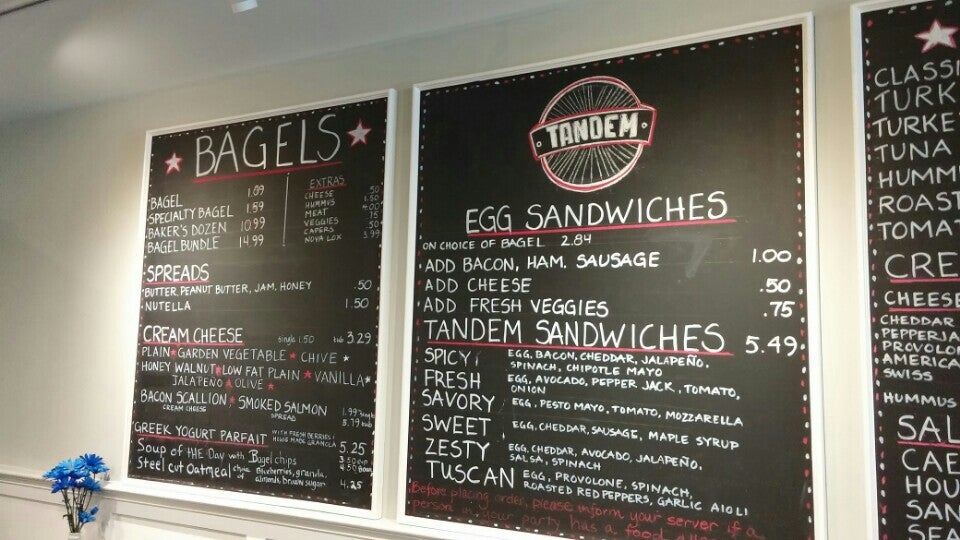 BAGELS
BAGEL 1.09
SPECIALTY BAGEL 1.59
BAKER'S DOZEN 10.99
BAGEL BUNDLE 14.99
EXTRAS
CHEESE .50
HUMMUS 1.50
MEAT
VEGGIES .75
CAPERS .50
NOVA LOX 3.99
SPREADS
BUTTER, PEANUT BUTTER, JAM, HONEY .50
NUTELLA 1.50
CREAM CHEESE single 1.50 tub 3.29
PLAIN GARDEN VEGETABLE CHIVE
HONEY WALNUT LOW FAT PLAIN VANILLA
JALAPEÑO OLIVE
BACON SCALLION SMOKED SALMON 1.99 single
CREAM CHEESE SPREAD tub
GREEK YOGURT PARFAIT WITH FRESH BERRIES 5.25
HOME MADE GRANOLA
Soup of the Day with Bagel chips
Steel cut Oatmeal choice of Blueberries, granula, 4.25
almonds, brown sugar
TANDEM
EGG SANDWICHES
ON CHOICE OF BAGEL 2.84
ADD BACON, HAM. SAUSAGE 1.00
ADD CHEESE .50
ADD FRESH VEGGIES .75
TANDEM SANDWICHES 5.49
SPICY EGG, BACON, CHEDDAR, JALAPEÑO,
SPINACH, CHIPOTLE MAYO
FRESH EGG, AVOCADO, PEPPER JACK, TOMATO,
ONION
SAVORY EGG, PESTO MAYO, TOMATO, MOZZARELLA
SWEET EGG, CHEDDAR, SAUSAGE, MAPLE SYRUP
ZESTY EGG, CHEDDAR, AVOCADO, JALAPEÑO,
SALSA, SPINACH
TUSCAN EGG, PROVOLONE, SPINACH,
ROASTED RED PEPPERS, GARLIC AIOLI
Before placing order, please inform your server if a
person in your party has a food
CLASSI
TURK
TURKE
TUNA
HUMM
ROAST
TOMAT
CRE
CHEESE
CHEDDAR
PEPPERJA
PROVOLON
AMERICA
SWISS
HUMMUS
SAL
CAE
HOU
SAN
SEA